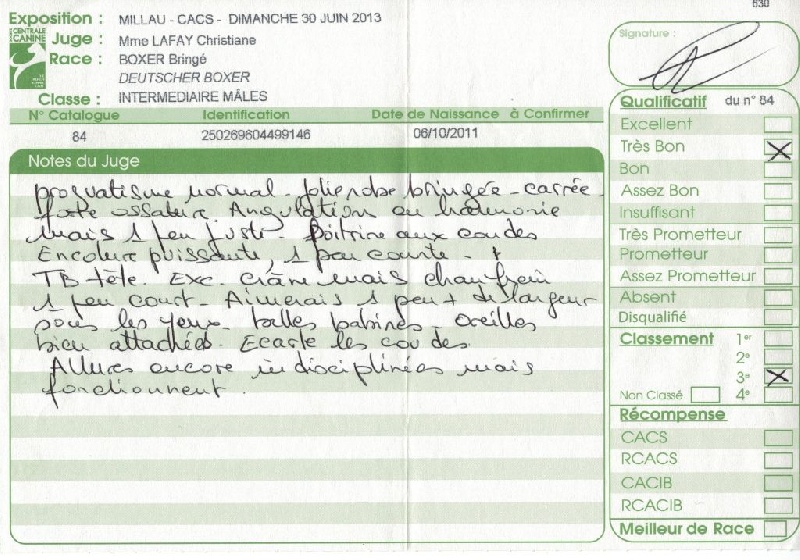 630
Exposition : MILLAU - CACS - DIMANCHE 30 JUIN 2013
CENTRALE CANINE
Juge : Mme LAFAY Christiane
Race : BOXER Bringé
DEUTSCHER BOXER
Classe : INTERMEDIAIRE MÂLES
N° Catalogue Identification Date de Naissance à Confirmer
84 250269604499146 06/10/2011
Notes du Juge
prognatisme normal - Jolie robe bringée - carrée
forte ossature. Angulation en harmonie
mais 1 peu juste. Poitrine aux coudes
Encolure puissante, 1 peu courte. +
TB tête. Exc. crâne mais chanfrein
1 peu court - Aimerais 1 peu + de largeur
sous les yeux. belles babines oreilles
bien attachées. Ecarte les coudes
Allures encore indisciplinées mais
fonctionnent.
Signature :
Qualificatif du n° 84
Excellent
Très Bon X
Bon
Assez Bon
Insuffisant
Très Prometteur
Prometteur
Assez Prometteur
Absent
Disqualifié
Classement 1er
2e
3e X
Non Classé 4e
Récompense
CACS
RCACS
CACIB
RCACIB
Meilleur de Race